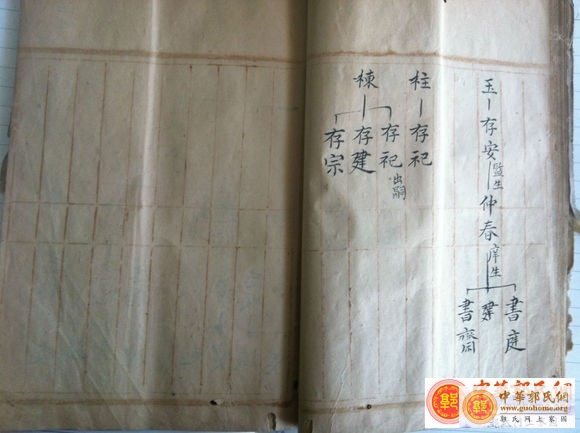 玉－存安監生－仲春庠生
書庭
建
書齋
柱－存祀
棟
存祀出嗣
存建
存宗
中華郭氏網
www.guohome.org
郭氏网上家園